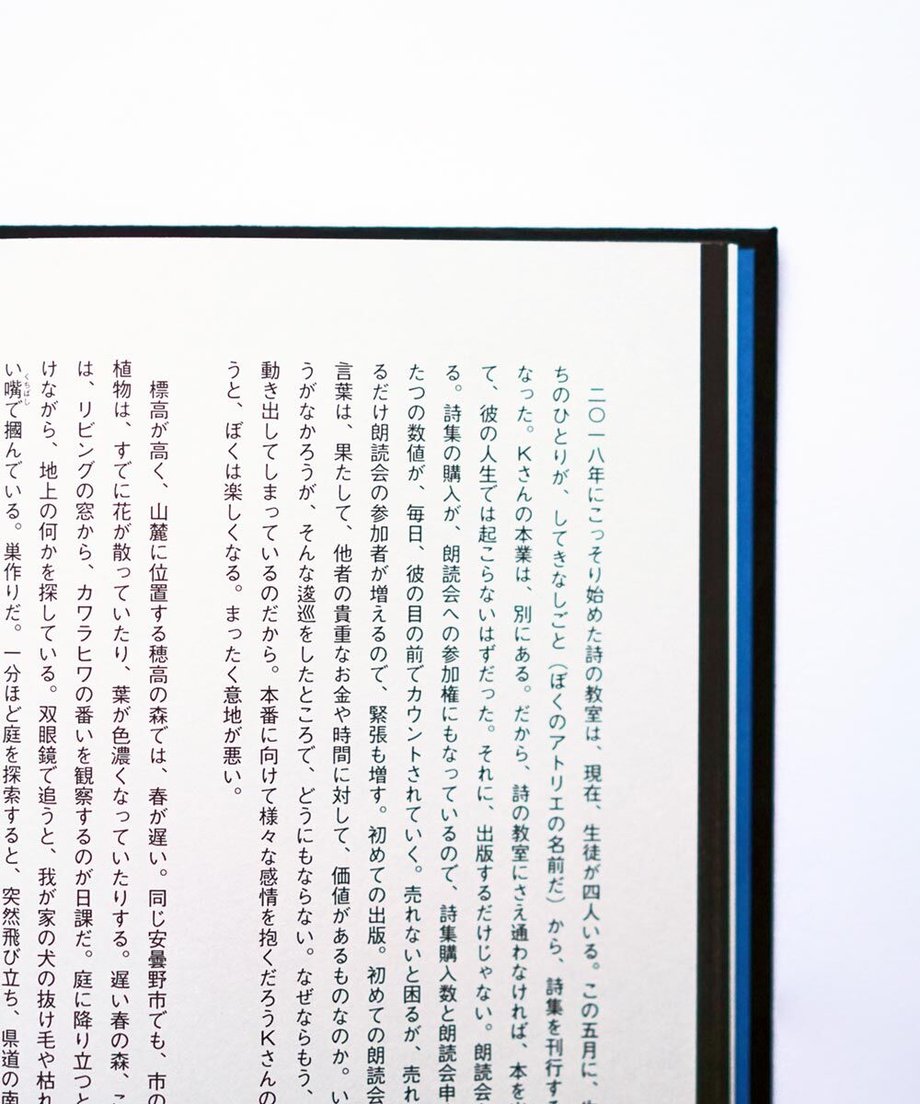 二〇一八年にこっそり始めた詩の教室は、現在、生徒が四人いる。この五月に、
ちのひとりが、してきなしごと（ぼくのアトリエの名前だ）から、詩集を刊行する
なった。Kさんの本業は、別にある。だから、詩の教室にさえ通わなければ、本を
て、彼の人生では起こらないはずだった。それに、出版するだけじゃない。朗読会
る。詩集の購入が、朗読会への参加権にもなっているので、詩集購入数と朗読会申
たつの数値が、毎日、彼の目の前でカウントされていく。売れないと困るが、売れ
るだけ朗読会の参加者が増えるので、緊張も増す。初めての出版。初めての朗読会
言葉は、果たして、他者の貴重なお金や時間に対して、価値があるものなのか。い
うがなかろうが、そんな逡巡をしたところで、どうにもならない。なぜならもう、
動き出してしまっているのだから。本番に向けて様々な感情を抱くだろうKさんの
うと、ぼくは楽しくなる。まったく意地が悪い。
標高が高く、山麓に位置する穂高の森では、春が遅い。同じ安曇野市でも、市の
植物は、すでに花が散っていたり、葉が色濃くなっていたりする。遅い春の森、こ
は、リビングの窓から、カワラヒワの番いを観察するのが日課だ。庭に降り立つと
けながら、地上の何かを探している。双眼鏡で追うと、我が家の犬の抜け毛や枯れ
い嘴くちばしで摑んでいる。巣作りだ。一分ほど庭を探索すると、突然飛び立ち、県道の南